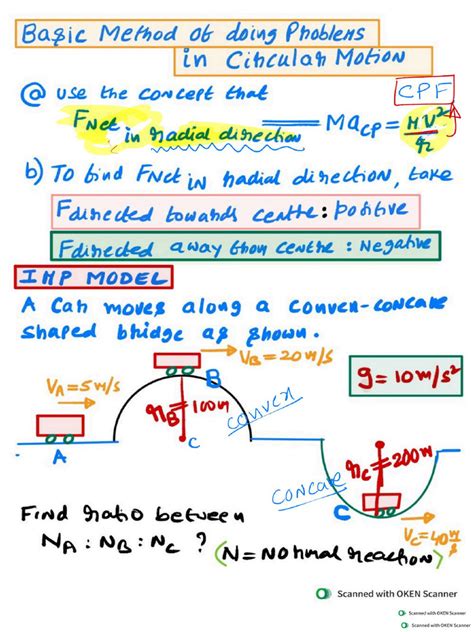 Basic Method of doing Problems
in Circular Motion
@ use the concept that
CPF
FNet in radial direction = Macp = MV²/r
b) To find FNet in radial direction, take
Fdirected towards centre : positive
Fdirected away from centre : Negative
IMP MODEL
A Car moves along a convex-concave
shaped bridge as shown.
VB = 20m/s
VA = 5m/s
B
g = 10m/s²
rB = 100m
convex
C
A
rC = 200m
concave
C
VC = 40m/s
Find ratio between
NA : NB : NC ? (N = Normal reaction)
Scanned with OKEN Scanner
Scanned with OKEN Scanner
Scanned with OKEN Scanner